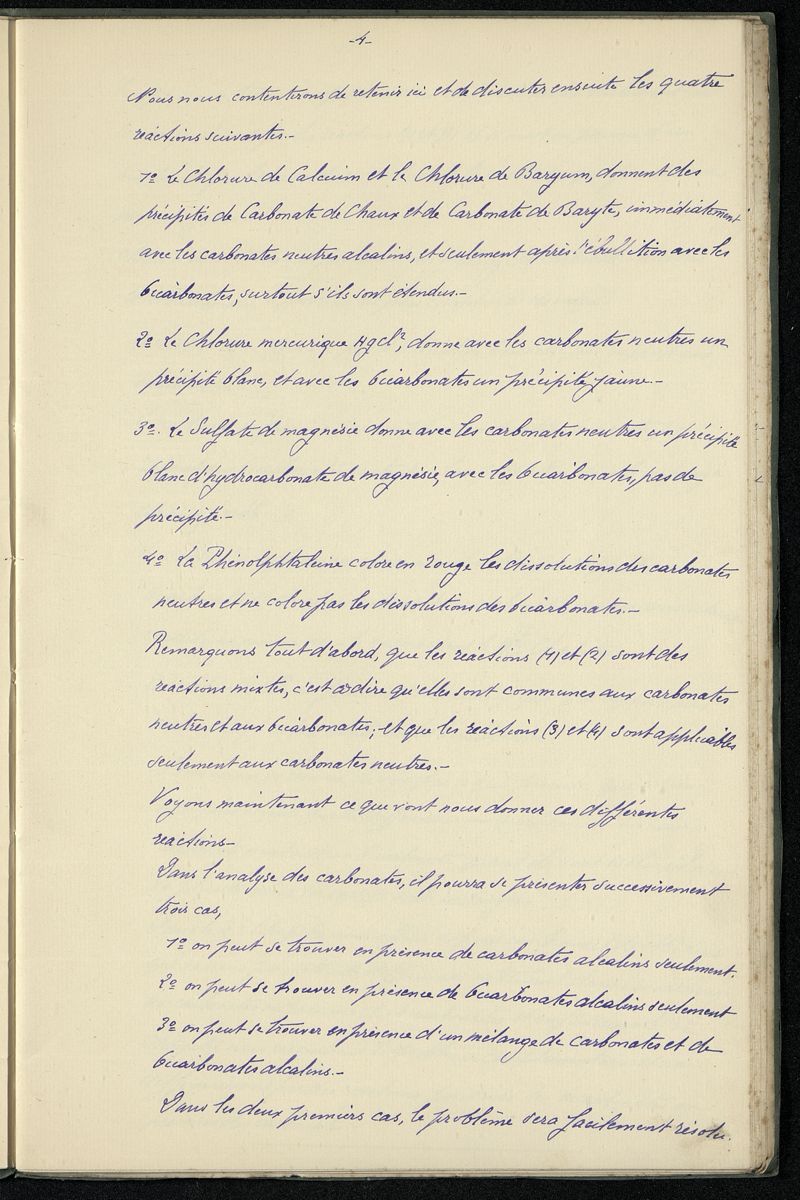 -4-
Nous nous contentirons de retenir ici et de discuter ensuite les quatre
réactions suivantes.-
1º Le Chlorure de Calcium et le Chlorure de Baryum, donnent des
précipités de Carbonate de Chaux et de Carbonate de Baryte, immédiatement
avec les carbonates neutres alcalins, et seulement après l'ébullition avec les
bicarbonates, surtout s'ils sont étendus.-
2º Le Chlorure mercurique HgCl², donne avec les carbonates neutres un
précipité blanc, et avec les bicarbonates un précipité jaune.-
3º. Le Sulfate de magnésie donne avec les carbonates neutres un précipité
blanc d'hydrocarbonate de magnésie, avec les bicarbonates, pas de
précipité.-
4º La Phénolphtaleine colore en rouge les dissolutions des carbonates
neutres et ne colore pas les dissolutions des bicarbonates.-
Remarquons tout d'abord, que les réactions (1) et (2) sont des
réactions mixtes, c'est à dire qu'elles sont communes aux carbonates
neutres et aux bicarbonates; et que les réactions (3) et (4) sont applicables
seulement aux carbonates neutres.-
Voyons maintenant ce que vont nous donner ces différentes
réactions-
Dans l'analyse des carbonates, il pourra se présenter successivement
trois cas,
1º on peut se trouver en présence de carbonates alcalins seulement.
2º on peut se trouver en présence de bicarbonates alcalins seulement
3º on peut se trouver en présence d'un mélange de carbonates et de
bicarbonates alcalins.-
Dans les deux premiers cas, le problème sera facilement résolu.